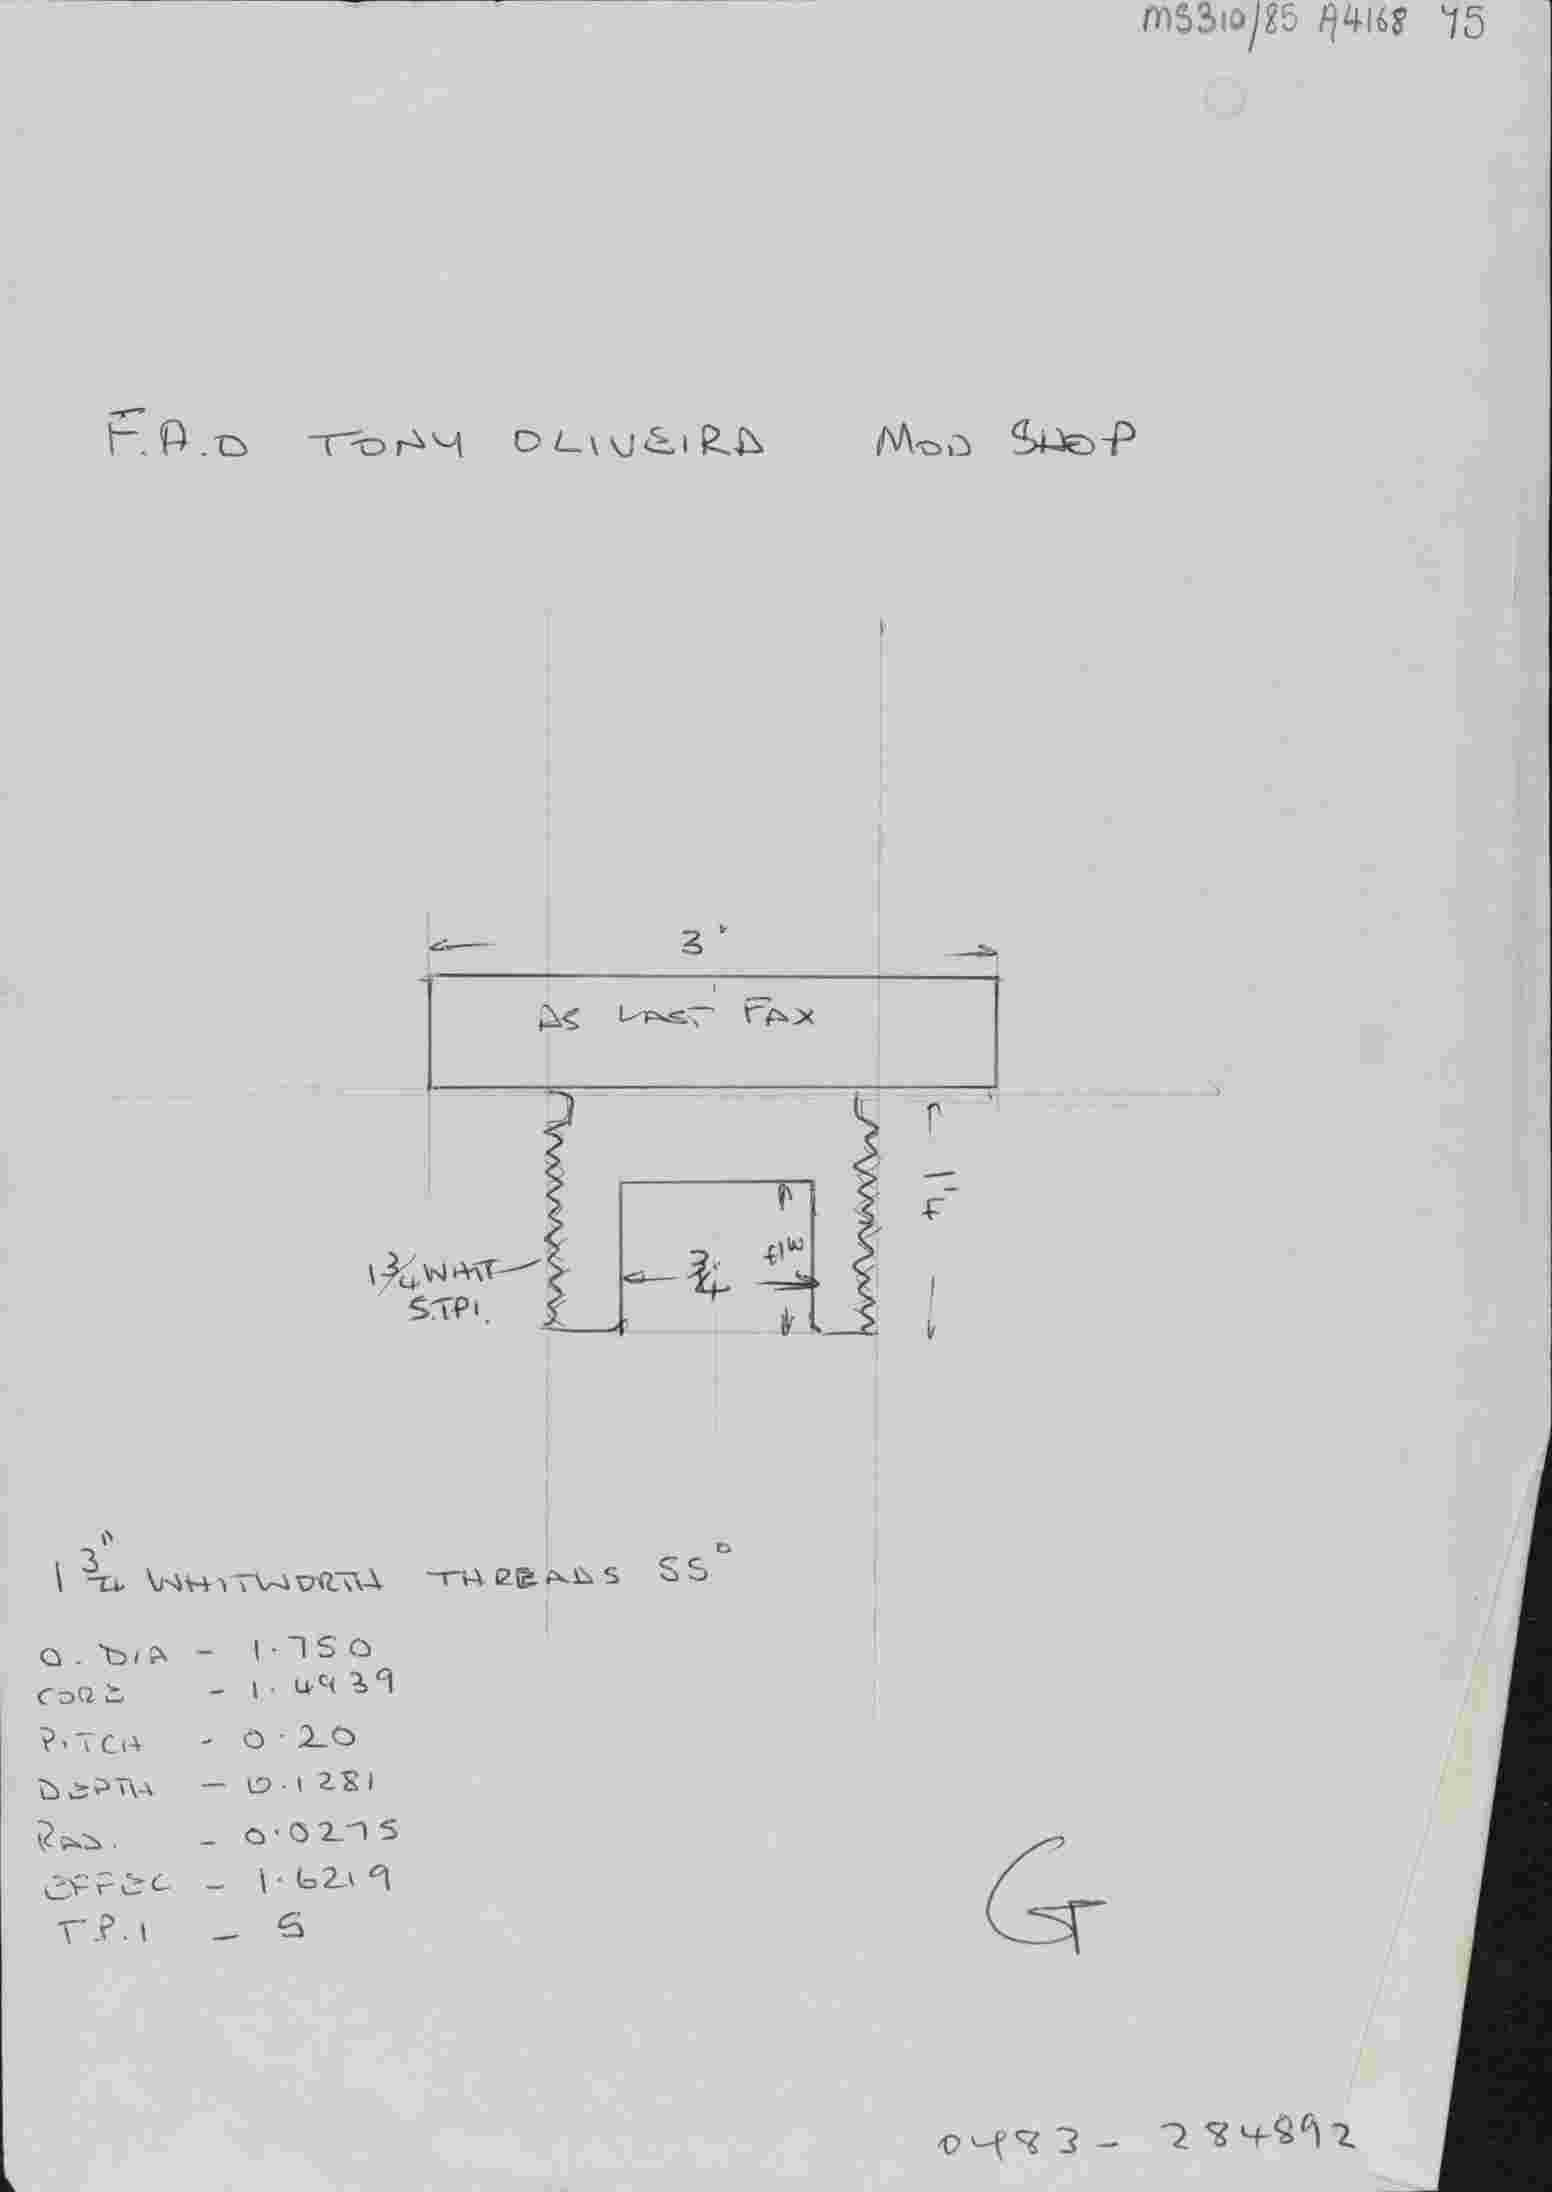 MS310/85 A4168 45
F.A.O TONY OLIVEIRA MOD SHOP
3"
AS LAST FAX
3/4
3/4
1 3/4 WHIT
5.TPI.
1 3/4" WHITWORTH THREADS 55°
O. DIA - 1.750
CORE - 1.4939
PITCH - 0.20
DEPTH - 0.1281
RAD. - 0.0275
EFFEC - 1.6219
T.P.I - 5
G
0483 - 284892